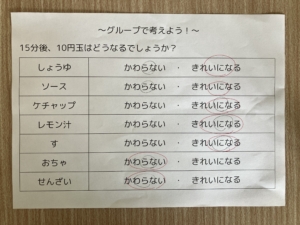 ～グループで考えよう！～
15分後、10円玉はどうなるでしょうか？
しょうゆ かわらない ・ きれいになる
ソース かわらない ・ きれいになる
ケチャップ かわらない ・ きれいになる
レモン汁 かわらない ・ きれいになる
す かわらない ・ きれいになる
おちゃ かわらない ・ きれいになる
せんざい かわらない ・ きれいになる